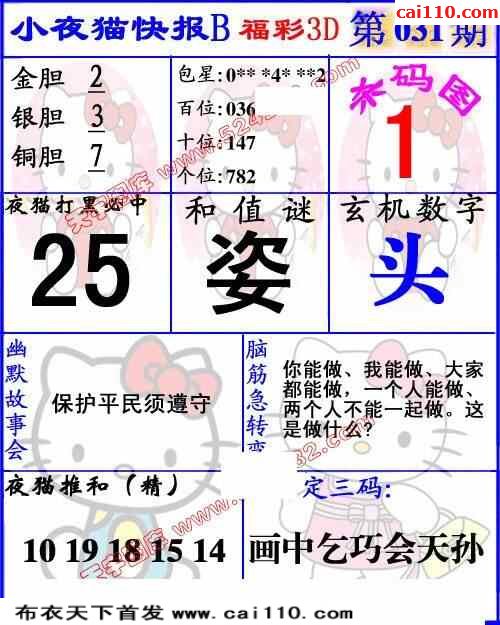 cai110.com
小夜猫快报B 福彩3D 第 031 期
金胆 2
银胆 3
铜胆 7
包星:0** *4* **2
百位:036
十位:147
个位:782
码图
1
夜猫打黑必中
25
和值谜
姿
玄机数字
头
幽默故事会
保护平民须遵守
脑筋急转弯
你能做、我能做、大家
都能做,一个人能做、
两个人不能一起做。这
是做什么?
夜猫推和(精)
10 19 18 15 14
定三码:
画中乞巧会天孙
布衣天下首发 www.cai110.com